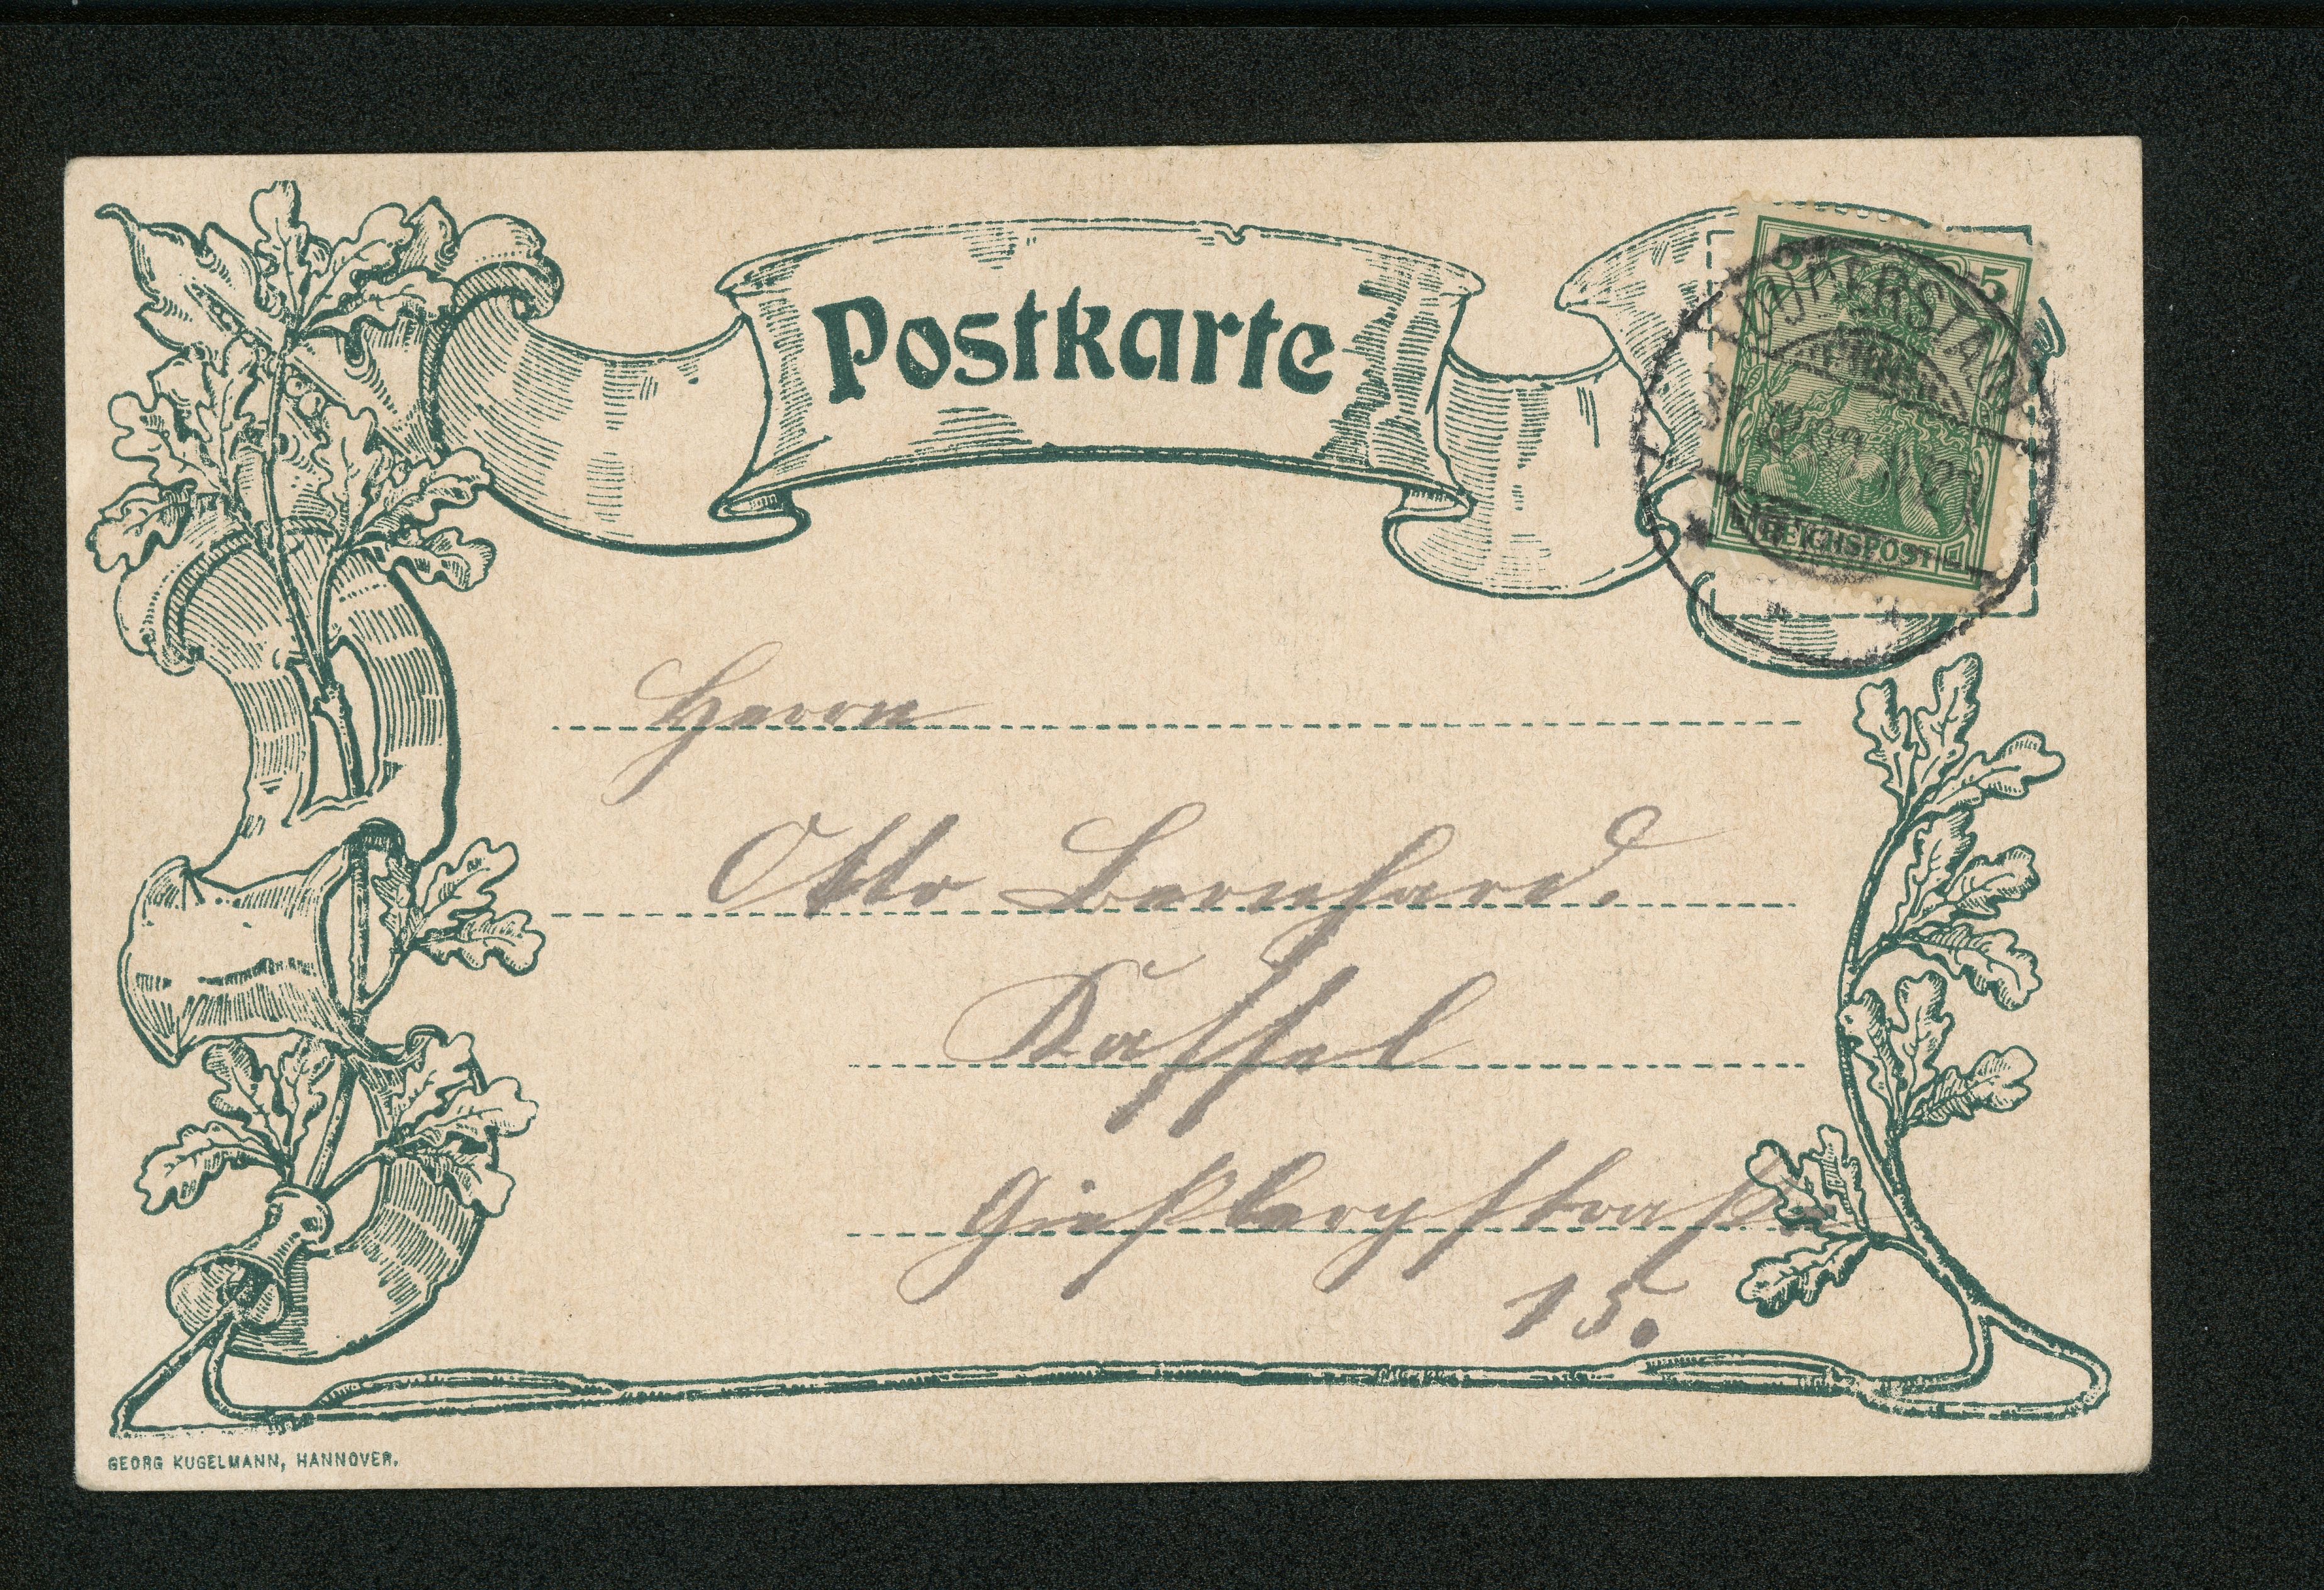 Postkarte
5
REICHSPOST
Herrn
Otto Bernhard.
Kassel
Gießbergstraße
15.
GEORG KUGELMANN, HANNOVER.